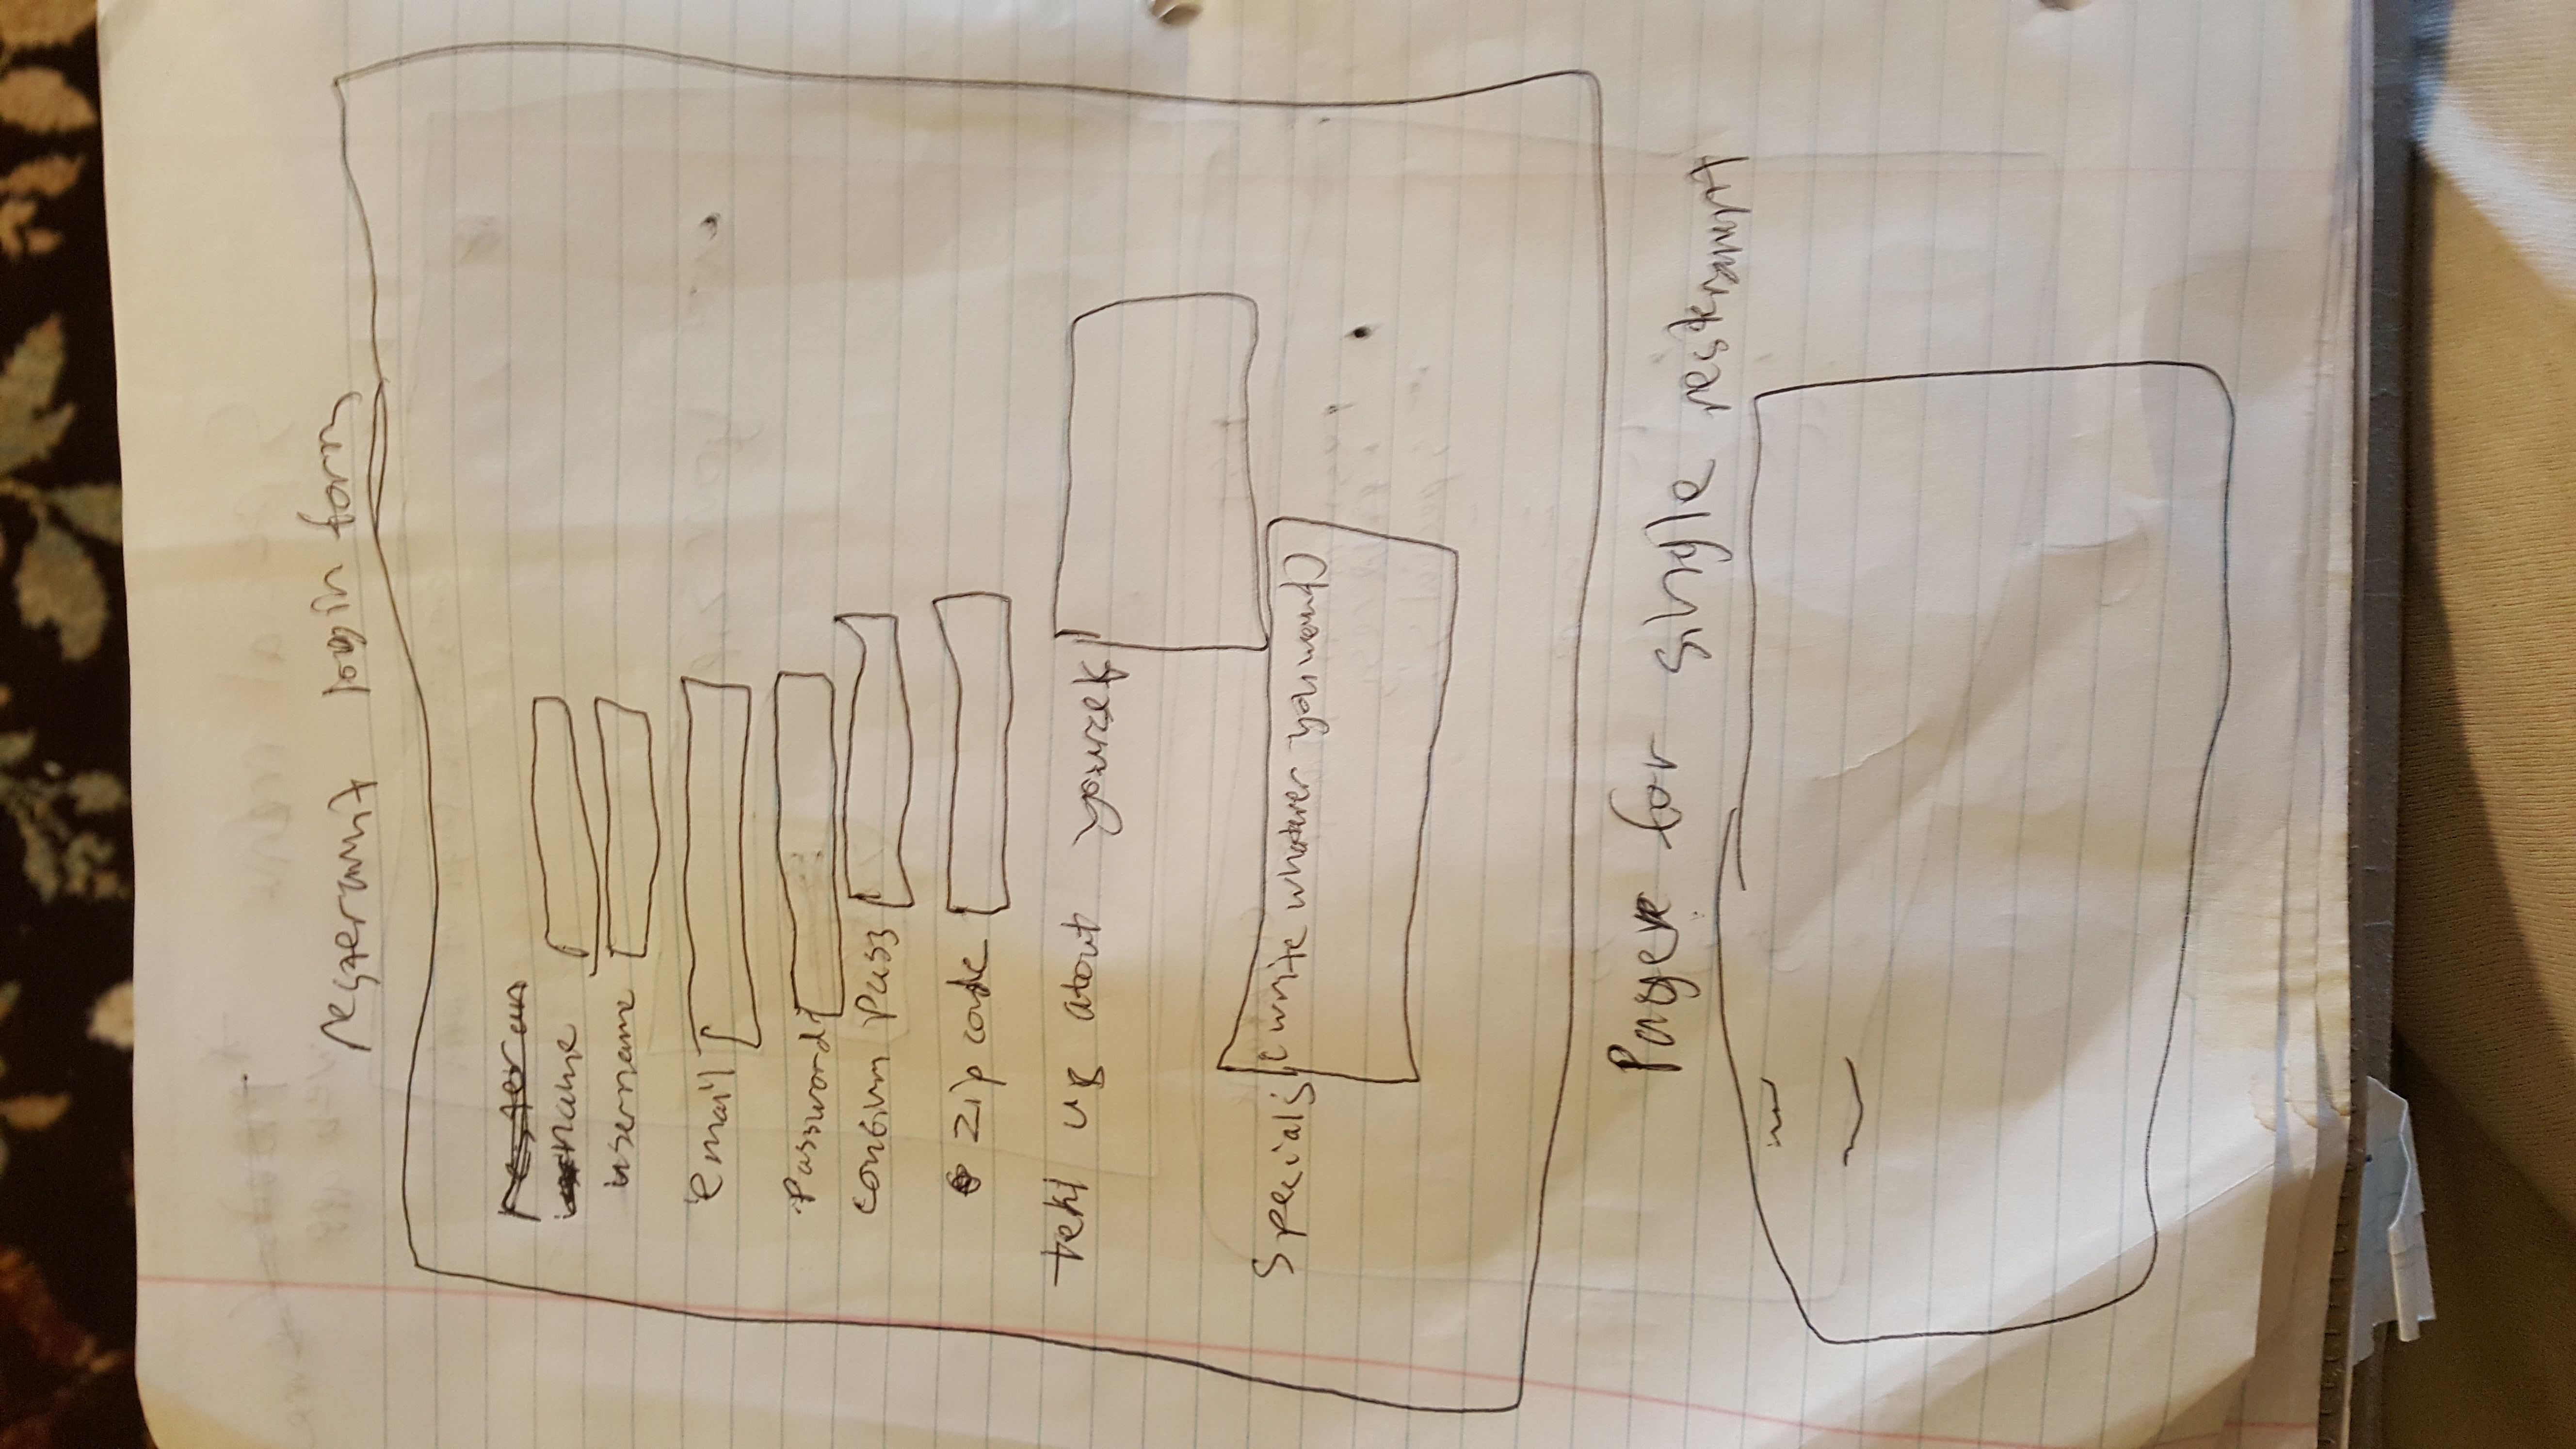 resteraunt login form
resteran
name
username
email
Password
confirm Pass
zip code
tell us about yourself
Specials
write whatever you want
Page for single resteraunt